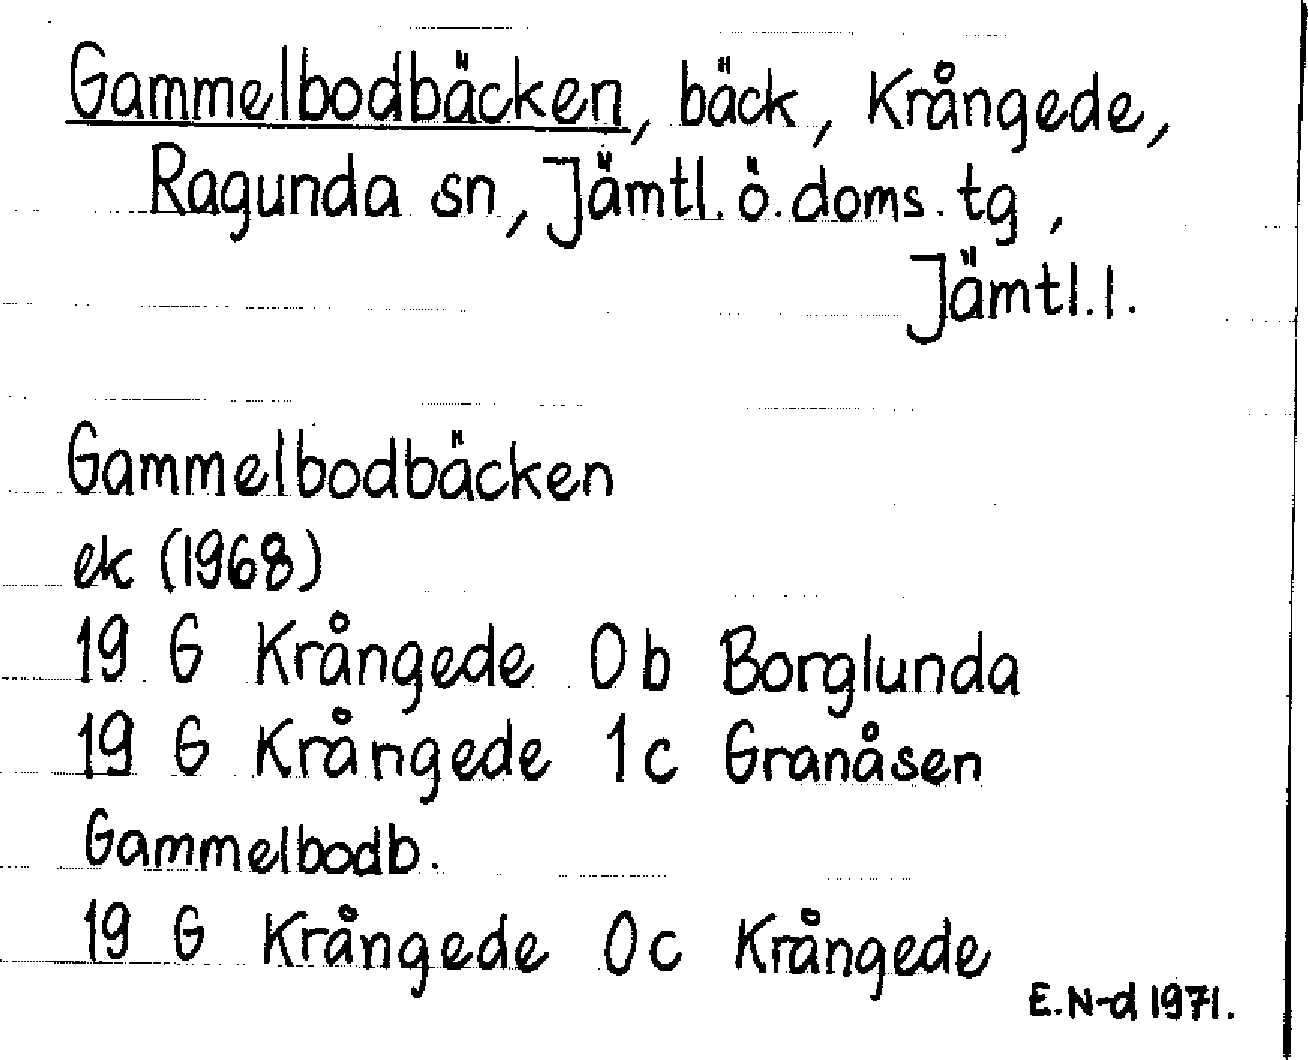 Gammelbodbäcken, bäck, Krångede,
Ragunda sn, Jämtl. ö. doms. tg,
Jämtl. l.
Gammelbodbäcken
ek (1968)
19 G Krångede 0b Borglunda
19 G Krångede 1c Granåsen
Gammelbodb.
19 G Krångede 0c Krångede
E. N-d 1971.